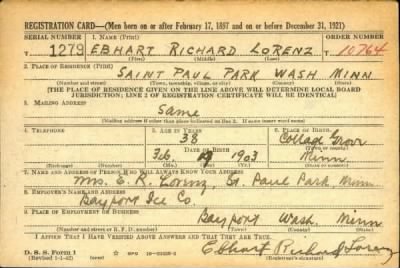 REGISTRATION CARD—(Men born on or after February 17, 1897 and on or before December 31, 1921)
SERIAL NUMBER 1. NAME (Print) ORDER NUMBER
T 1279 EBHART RICHARD LORENZ T 10764
(First) (Middle) (Last)
2. PLACE OF RESIDENCE (Print)
SAINT PAUL PARK WASH MINN
(Number and street) (Town, township, village, or city) (County) (State)
[THE PLACE OF RESIDENCE GIVEN ON THE LINE ABOVE WILL DETERMINE LOCAL BOARD
JURISDICTION; LINE 2 OF REGISTRATION CERTIFICATE WILL BE IDENTICAL]
3. MAILING ADDRESS
Same
[Mailing address if other than place indicated on line 2. If same insert word same]
4. TELEPHONE 5. AGE IN YEARS 6. PLACE OF BIRTH
38 Cottage Grove
DATE OF BIRTH (Town or county)
Feb. 19 1903 Minn
(Exchange) (Number) (Mo.) (Day) (Yr.) (State or country)
7. NAME AND ADDRESS OF PERSON WHO WILL ALWAYS KNOW YOUR ADDRESS
Mrs. E. R. Lorenz, St. Paul Park, Minn
8. EMPLOYER'S NAME AND ADDRESS
Bayport Ice Co.
9. PLACE OF EMPLOYMENT OR BUSINESS
Bayport Wash. Minn
(Number and street or R. F. D. number) (Town) (County) (State)
I AFFIRM THAT I HAVE VERIFIED ABOVE ANSWERS AND THAT THEY ARE TRUE.
D. S. S. Form 1
(Revised 1-1-42) (over)
Ebhart Richard Lorenz
(Registrant's signature)